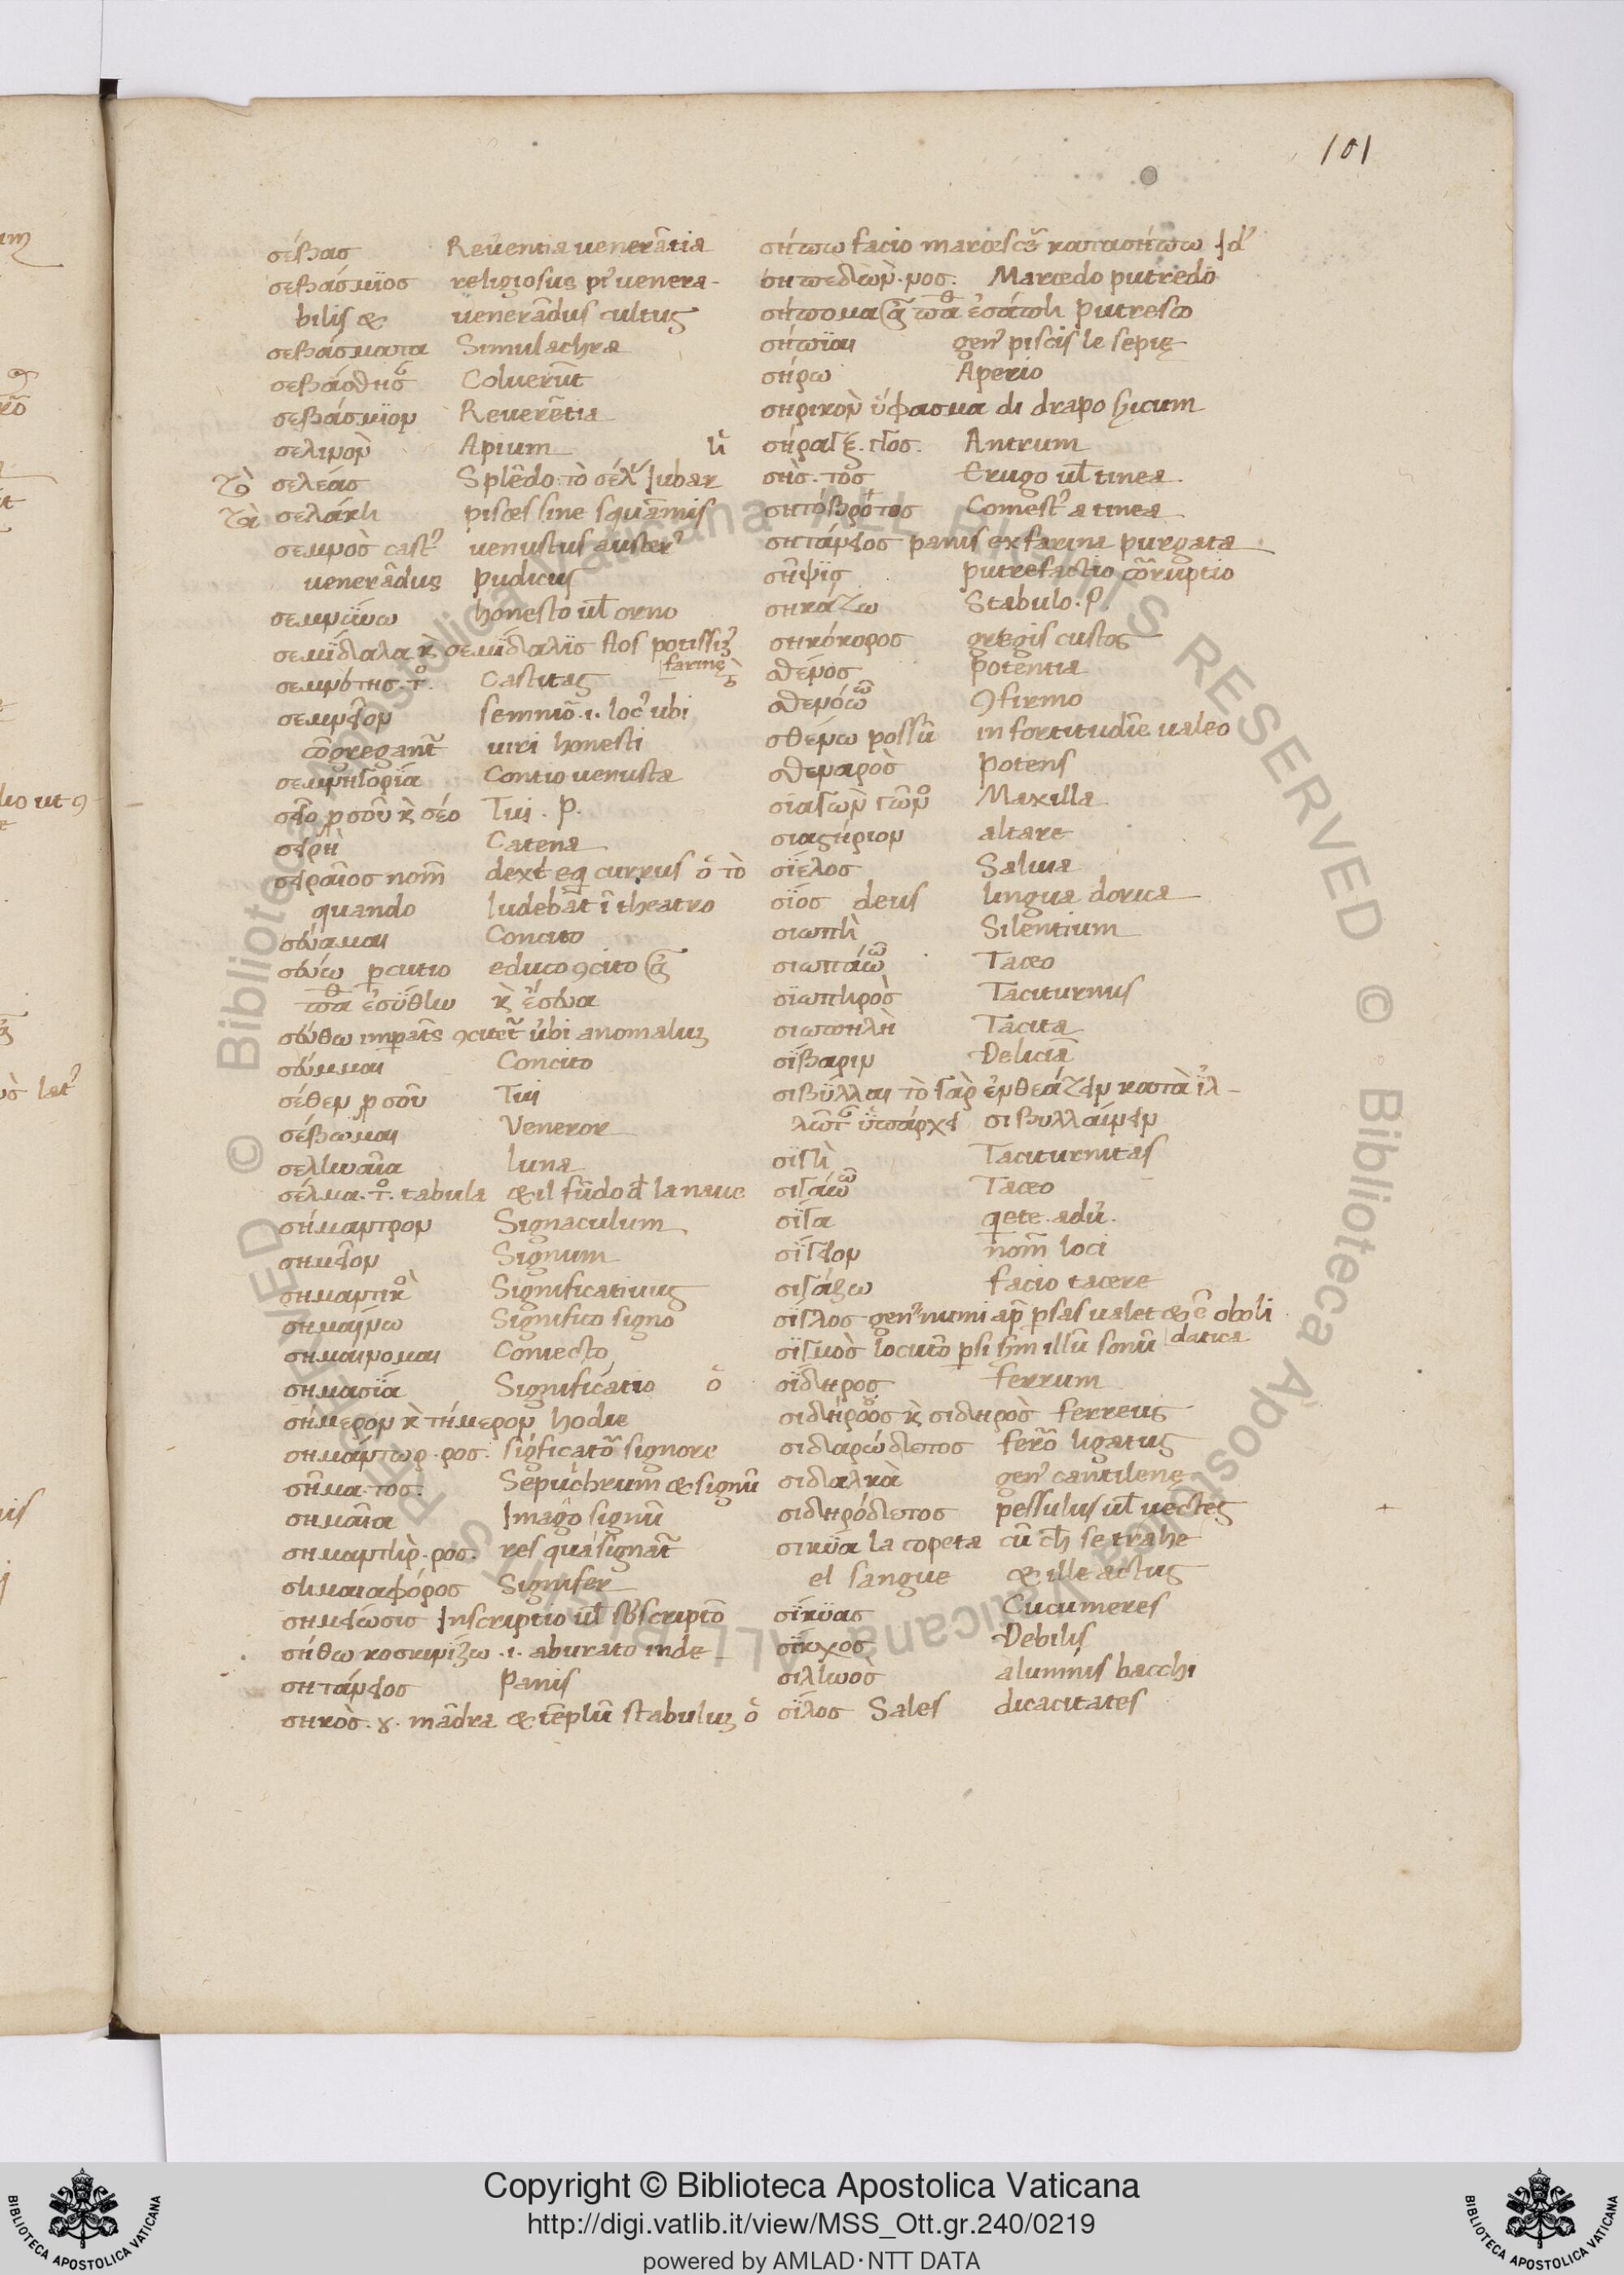 101
σέβας Reuentia ueneratia
σεβάσμϊος religiosus pr uenera-
bilis & uenerādus cultus
σεβάσματα Simulachra
σεβάσθησ Coluerūt
σεβάσμϊον Reuerētia
σελινὸν Apium
τὸ σελέας Splēdo. τὸ σέλ Jubar
τὰ σελάχη pisces sine squāmis
σεμνὸς cast' uenustus auster'
uenerādus pudicus
σεμνΰνω honesto ul orno
σεμίδαλα κὶ σεμίδαλϊς flos potissiʒ
farinę
σεμνότης. τ. Castitas
σεμνεῖον semniō .i. loc' ubi
cōgregant uiri honesti
σεμνηγορία Contio uenusta
σεῖο p σοῦ κὶ σέο Tui . P.
σειρὴ Catena
σειραῖος nom̄ dext eq currus ὁ τὸ
quando ludebāt ī theatro
σεύαμαι Concito
σεύω pcutio educo ꝯcito
ἐσύθην κὶ ἔσευα
σεύθω imparts ꝯcitet ubi anomaluʒ
σεύμμαι Concito
σέθεν p σοῦ Tui
σέβωμαι Veneror
σεληναία luna
σέλμα. τ. tabula & il fūdo d la naue
σήμαντρον Signaculum
σημεῖον Signum
σημαντικ Significatiuus
σημαίνω Significo signo
σημαινομαι Coniecto
σημασία Significatio
σήμερον κὶ τήμερον hodie
σημάντωρ . ρος. sigficator signore
σῆμα. τος. Sepulchrum & signū
σημαῖα Imago signū
σημαντὴρ. ρος. res qua signat
σημαιαφόρος Signifer
σημείωσις Inscriptio ul sbscriptō
σήθω κοσκινίζω .i. aburato inde
σητάνειος Panis
σηκὸς. ȣ. mādra & tēplū stabuluʒ
σήπω facio marcesc' κατασήπω Jd'
σηπεδὼν. νος. Marcedo putredo
σήπομαι ἐσάπη putresco
σήπϊαι gen' piscis le sepię
σήρω Aperio
σηρικὸν ὕφασμα di drapo sicum
ἡ σήραγξ. γγος. Antrum
σὴς. τος Erugo ul tinea
σητόβρότος Comest' a tinea
σητάνειος panis ex farina purgata
σῆψϊς putrefactio cōrruptio
σηκάζω Stabulo. P.
σηκόκορος gregis custos
τὸ σθένος potentia
σθενόω ꝯfirmo
σθένω possū in fortitudīe ualeo
σθεναρὸς Potens
σιαγὼν γῶν Maxilla
σιαστήριον altare
ὁ σίελος Saliua
σϊός deus lingua dorica
σιωπὴ Silentium
σιωπάω Taceo
σϊωπηρὸς Taciturnus
σιωπηλὴ Tacita
σΐβαριν Delicia
σιβΰλλαι τὸ γὰρ ἐνθεάζειν κατὰ ϊλ-
ὑπάρχει σιβυλλαίνειν
σϊγὴ Taciturnitas
σιγάω Taceo
σῖγα qete. adu.
σΐγειον nom̄ loci
σιγάζω facio tacere
σΐγλος gen' numi ap psas ualet & ē oboli
datica
σϊγμὸς locutō psi sm illū sonū
ὁ σΐδηρος ferrum
σιδήρεος κὶ σιδηρὸς ferreus
σιδαρώδετος ferō ligatus
σιδαλκὰ gen' cantilene
σιδηρόδετος pessulus ul uectes
σικΰα la copeta cū ch se trahe
el sangue & ille actus
σΐκϋας Cucumeres
σΐκχος Debilis
σιληνὸς alumnus bacchi
ὁ σΐλος Sales dicacitates
Copyright © Biblioteca Apostolica Vaticana
http://digi.vatlib.it/view/MSS_Ott.gr.240/0219
powered by AMLAD·NTT DATA
BIBLIOTECA APOSTOLICA VATICANA
BIBLIOTECA APOSTOLICA VATICANA
© Biblioteca Apostolica Vaticana ALL RIGHTS RESERVED
© Biblioteca Apostolica Vaticana ALL RIGHTS RESERVED